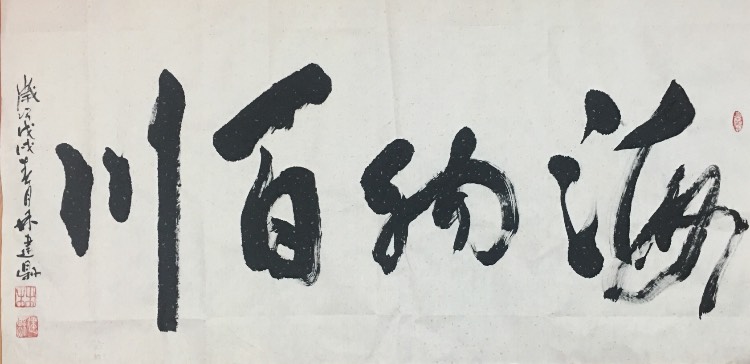 海纳百川
歲次戊戌春月林建